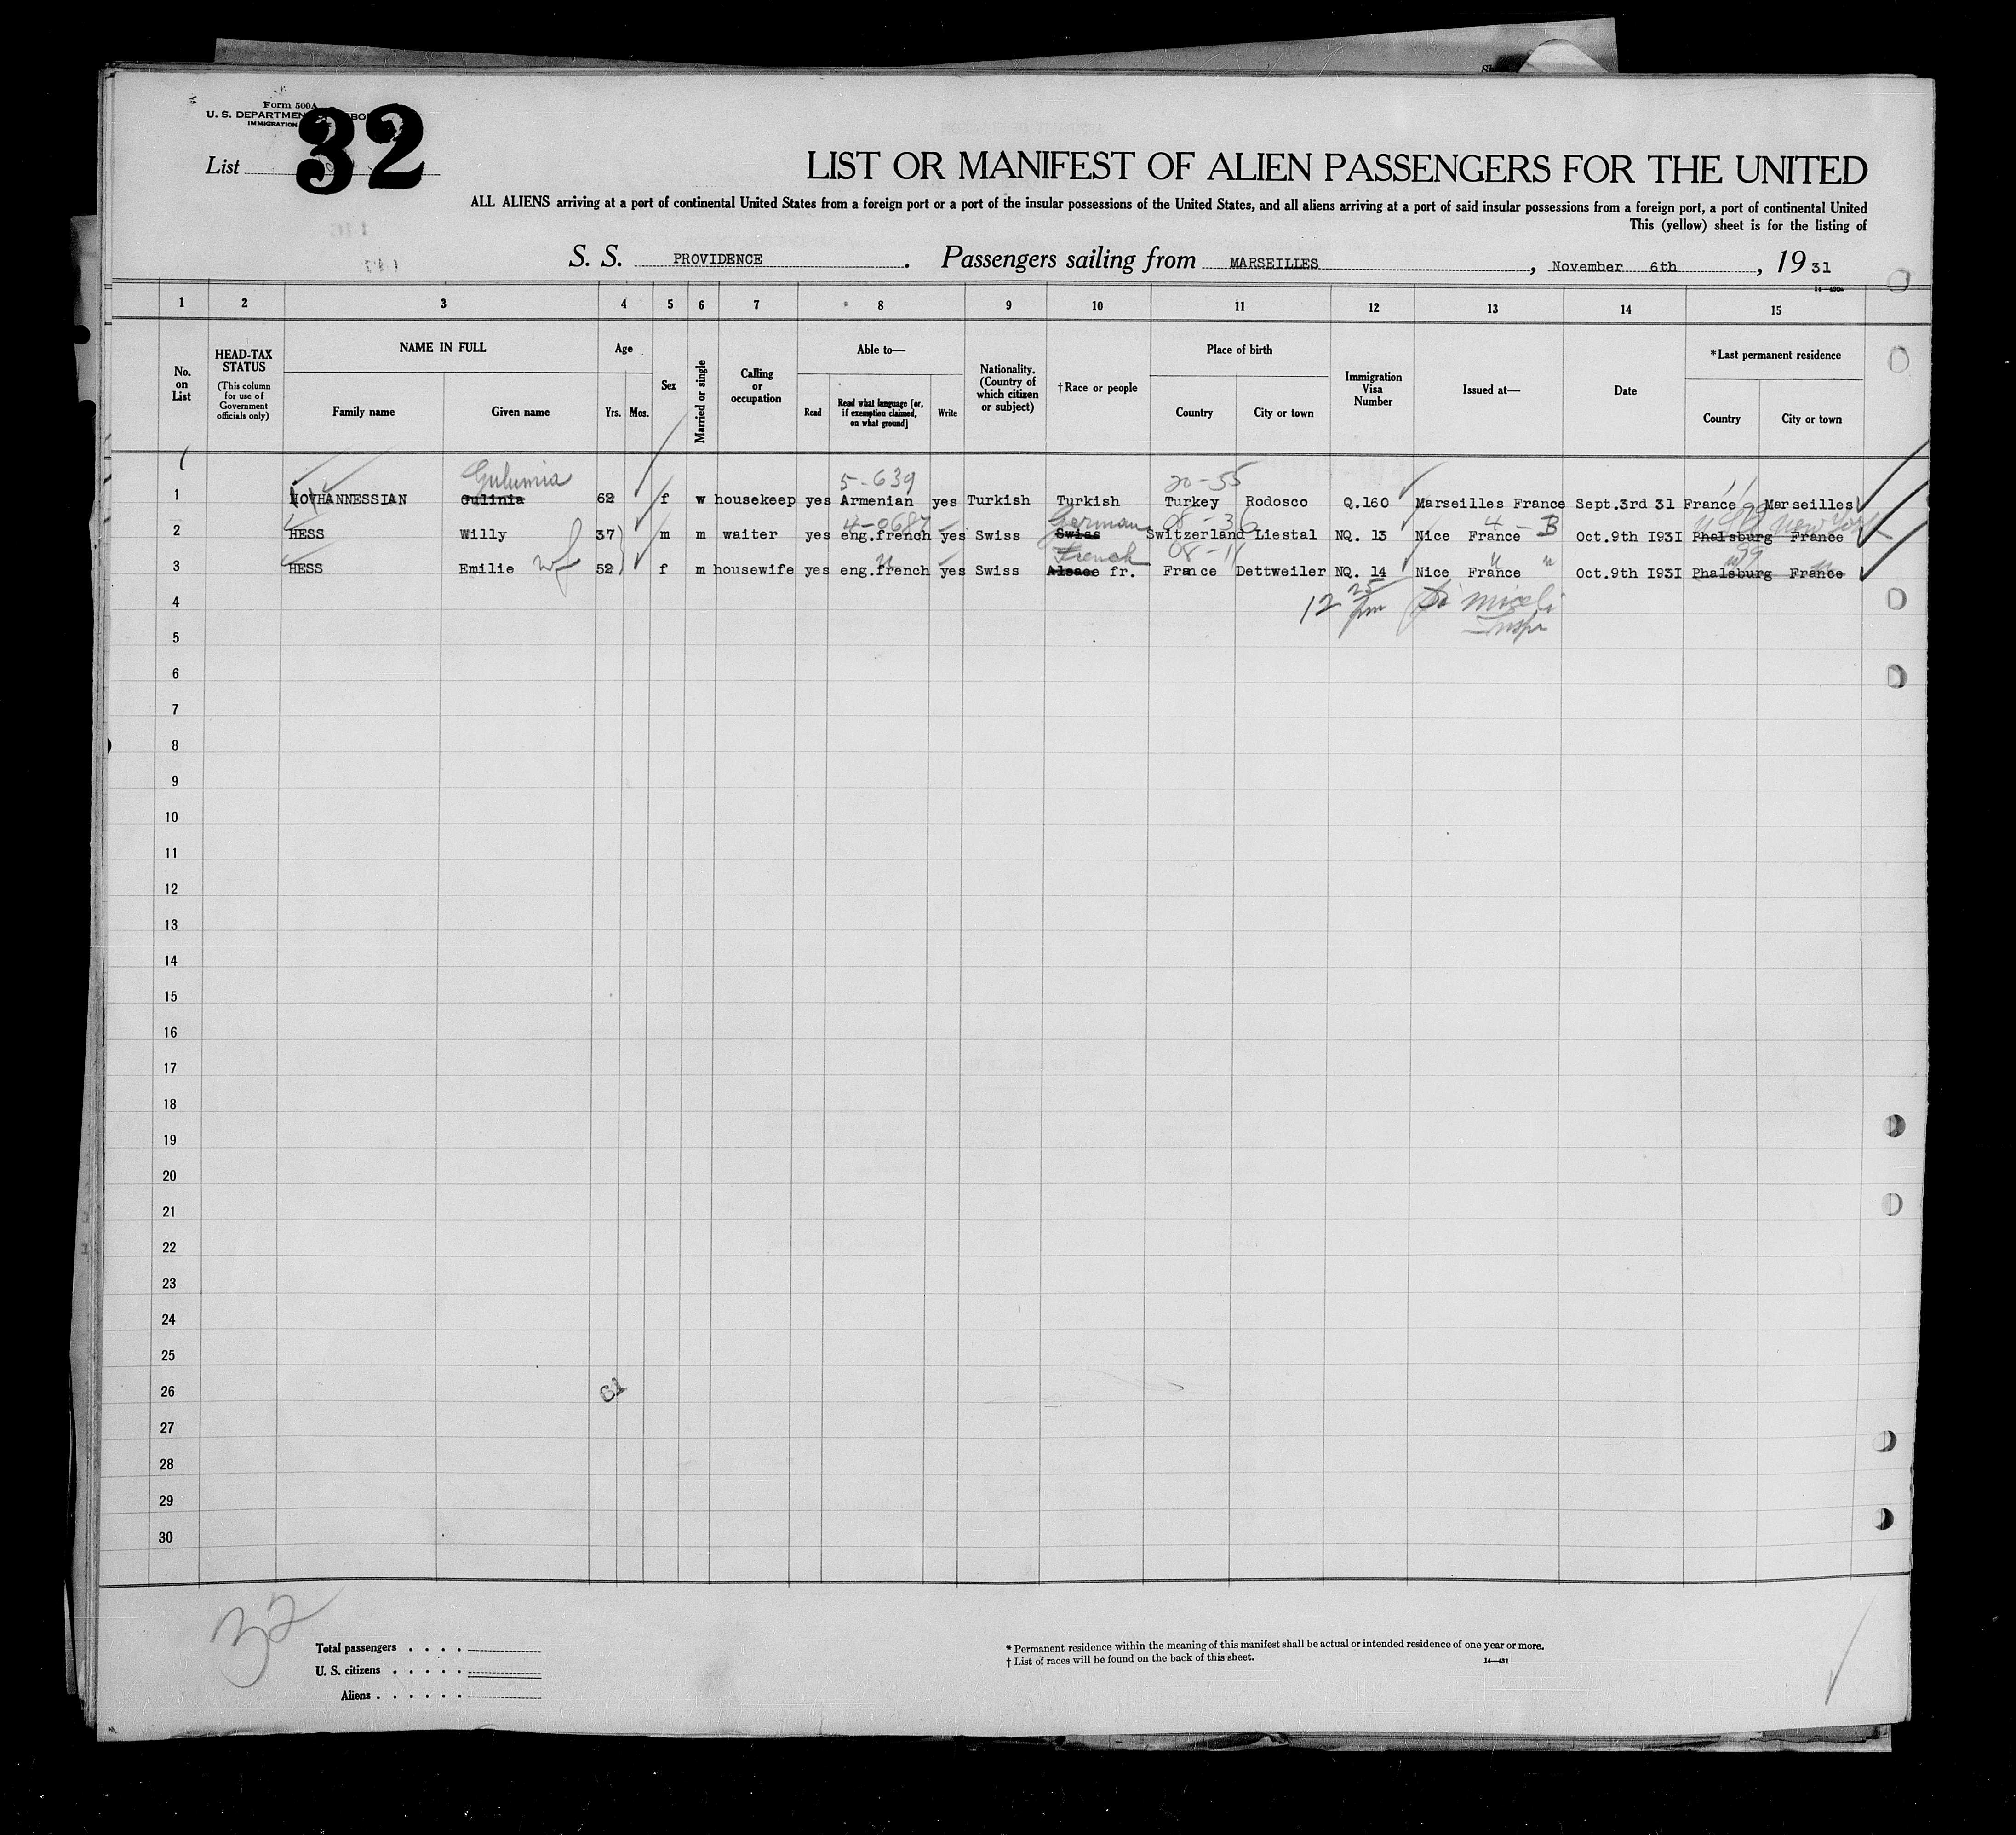 Form 500A
U. S. DEPARTMENT
IMMIGRATION
List 32
LIST OR MANIFEST OF ALIEN PASSENGERS FOR THE UNITED
ALL ALIENS arriving at a port of continental United States from a foreign port or a port of the insular possessions of the United States, and all aliens arriving at a port of said insular possessions from a foreign port, a port of continental United
This (yellow) sheet is for the listing of
S. S. PROVIDENCE. Passengers sailing from MARSEILLES, November 6th, 19 31
14—430a
1 2 3 4 5 6 7 8 9 10 11 12 13 14 15
No. on List
HEAD-TAX STATUS
(This column for use of Government officials only)
NAME IN FULL
Family name Given name
Age
Yrs. Mos.
Sex
Married or single
Calling or occupation
Able to—
Read
Read what language [or, if exemption claimed, on what ground]
Write
Nationality. (Country of which citizen or subject)
†Race or people
Place of birth
Country City or town
Immigration Visa Number
Issued at—
Date
*Last permanent residence
Country City or town
Gulumia 5-639 20-55
1 HOVHANNESSIAN Gulinia 62 f w housekeep yes Armenian yes Turkish Turkish Turkey Rodosco Q.160 Marseilles France Sept.3rd 31 France Marseilles
4-0687 German 08-36 4-B 99 New York
2 HESS Willy 37 m m waiter yes eng.french yes Swiss Swiss Switzerland Liestal NQ. 13 Nice France Oct.9th I93I Phalsburg France
French 08-11 " " 99
3 HESS Emilie wf 52 f m housewife yes eng.french yes Swiss Alsace fr. France Dettweiler NQ. 14 Nice France Oct.9th I93I Phalsburg France
4 12 25 pm
5 Inspr
6
7
8
9
10
11
12
13
14
15
16
17
18
19
20
21
22
23
24
25
26 61
27
28
29
30
32
Total passengers . . . .
U. S. citizens . . . . .
Aliens . . . . . .
* Permanent residence within the meaning of this manifest shall be actual or intended residence of one year or more.
† List of races will be found on the back of this sheet.
14—431